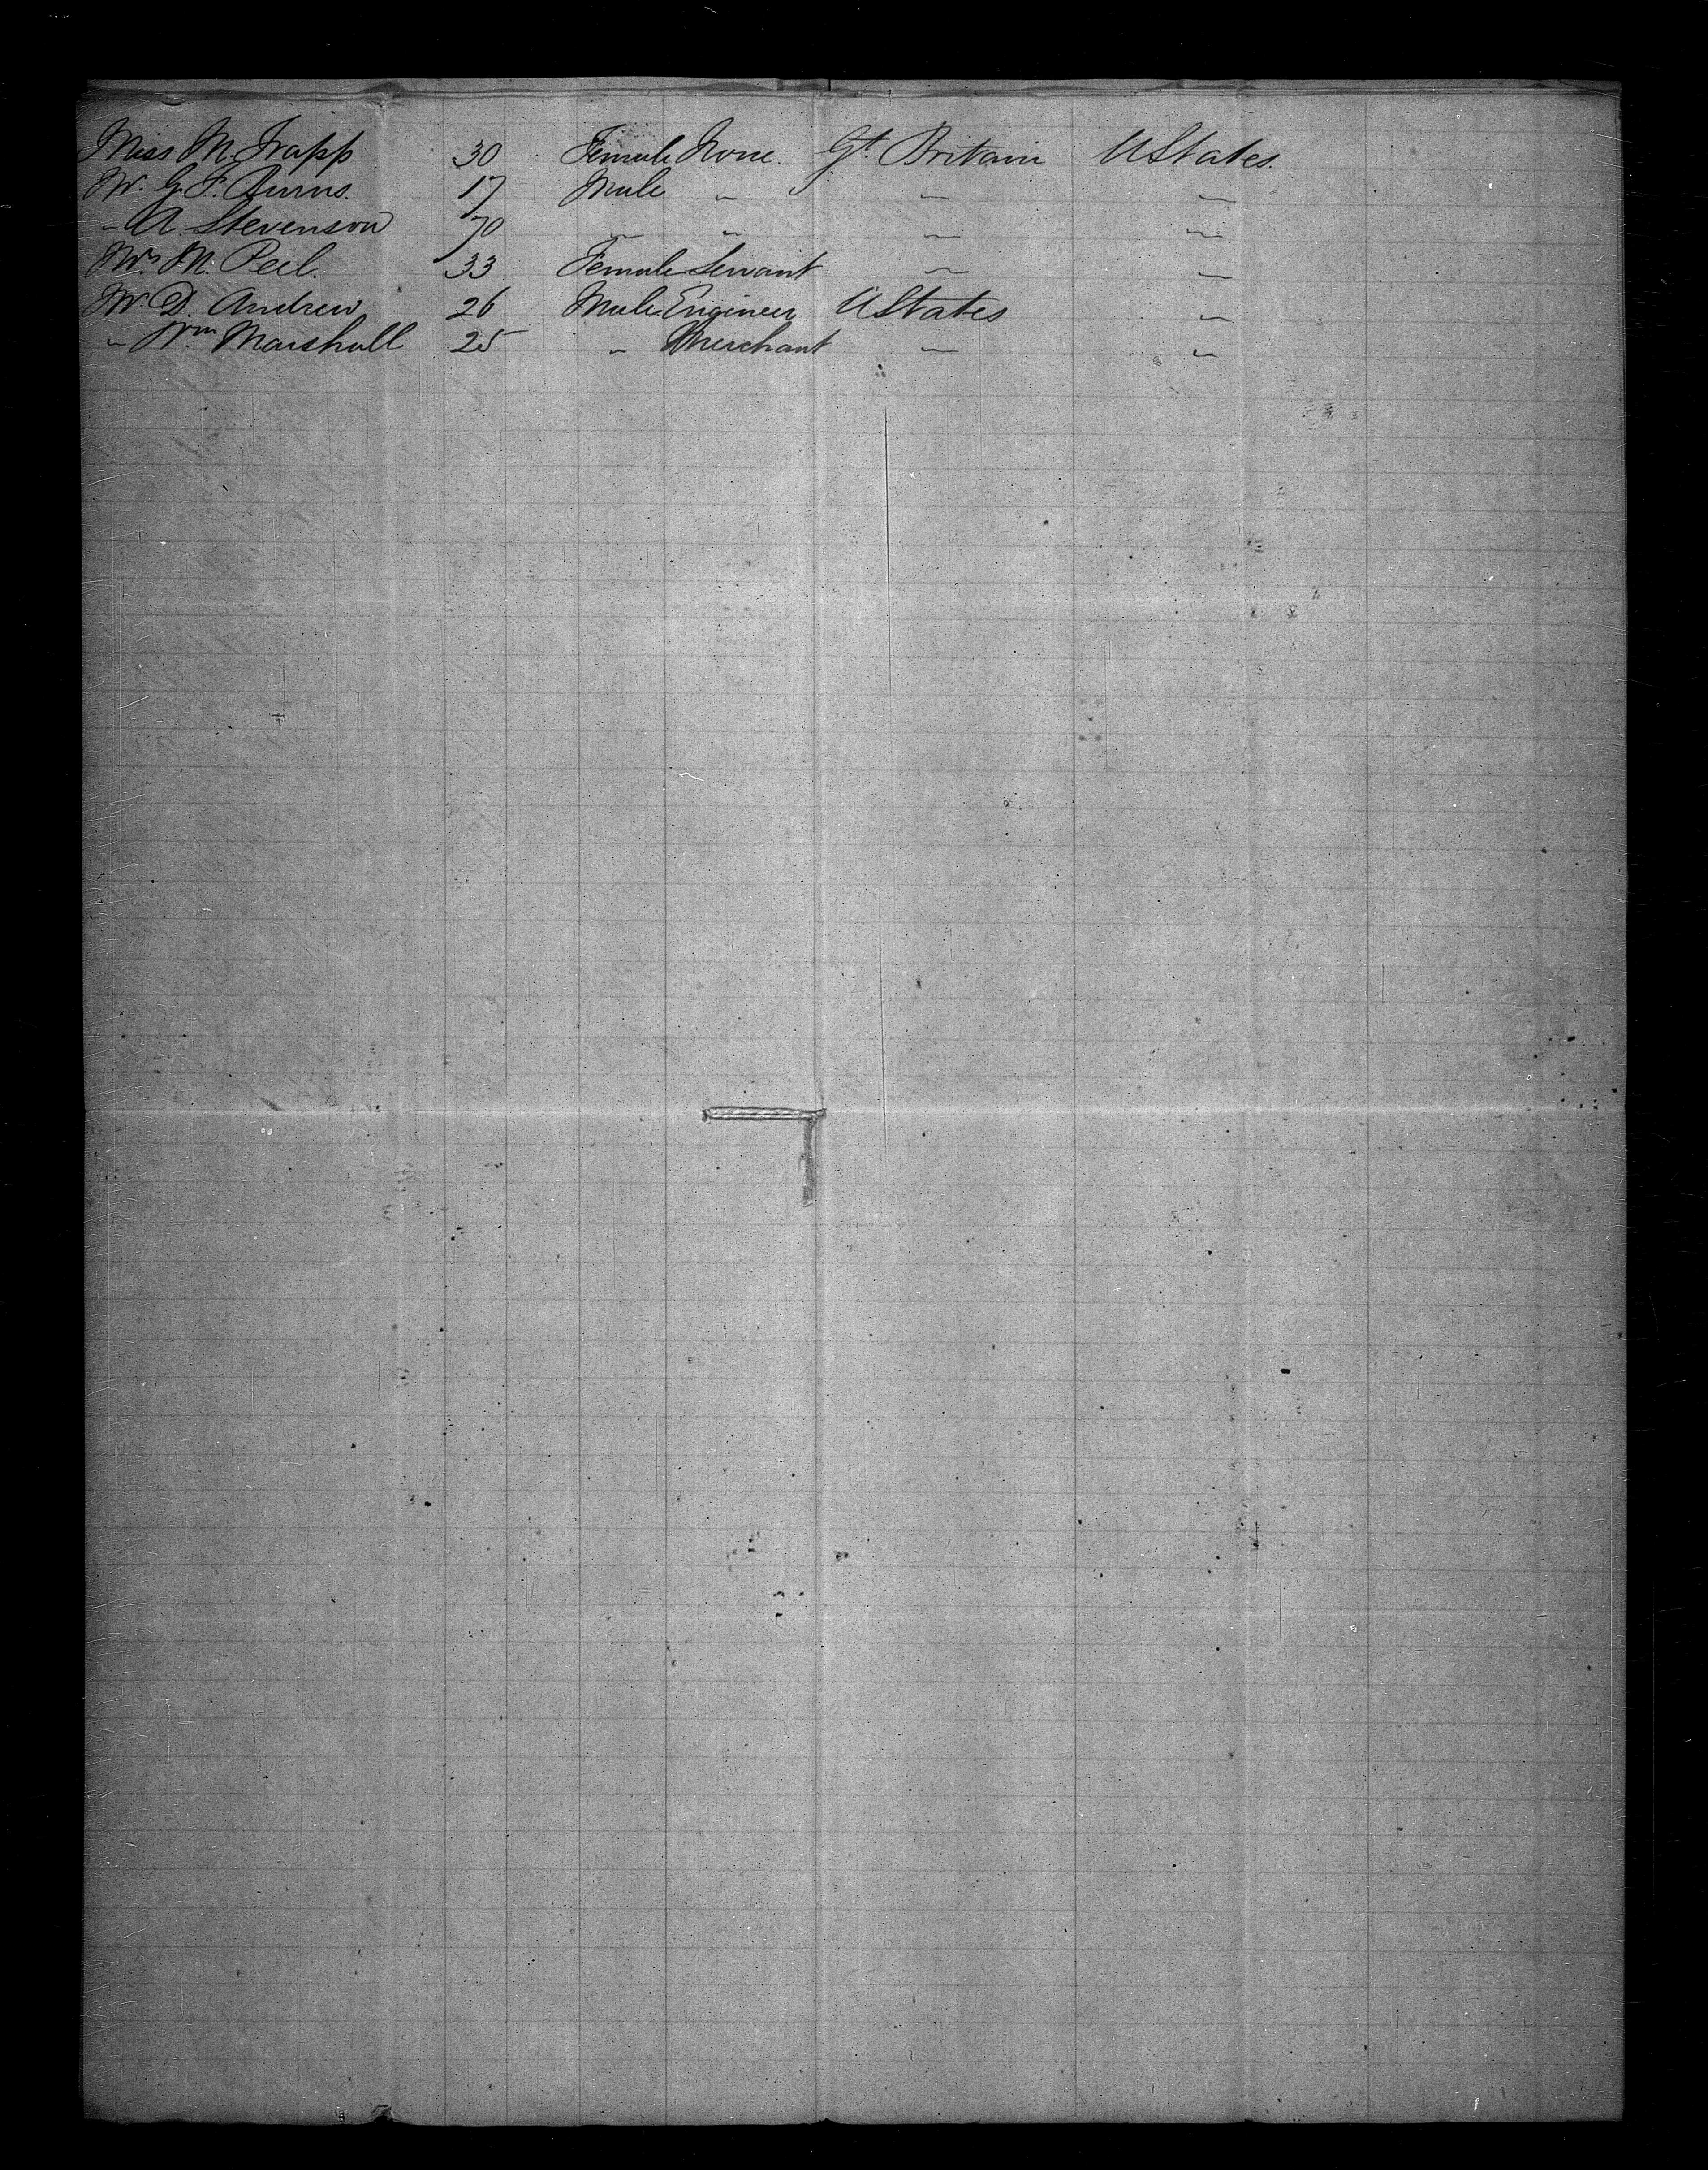 Miss M. Trapp 30 Female None. Gt. Britain U States.
Mr. G. F. Burns. 17 Male " " "
" A. Stevenson 70 " " " "
Mrs M. Peel. 33 Female Servant " "
Mr. D. Andrew 26 Male Engineer U States "
" Wm Marshall 25 " Merchant " "